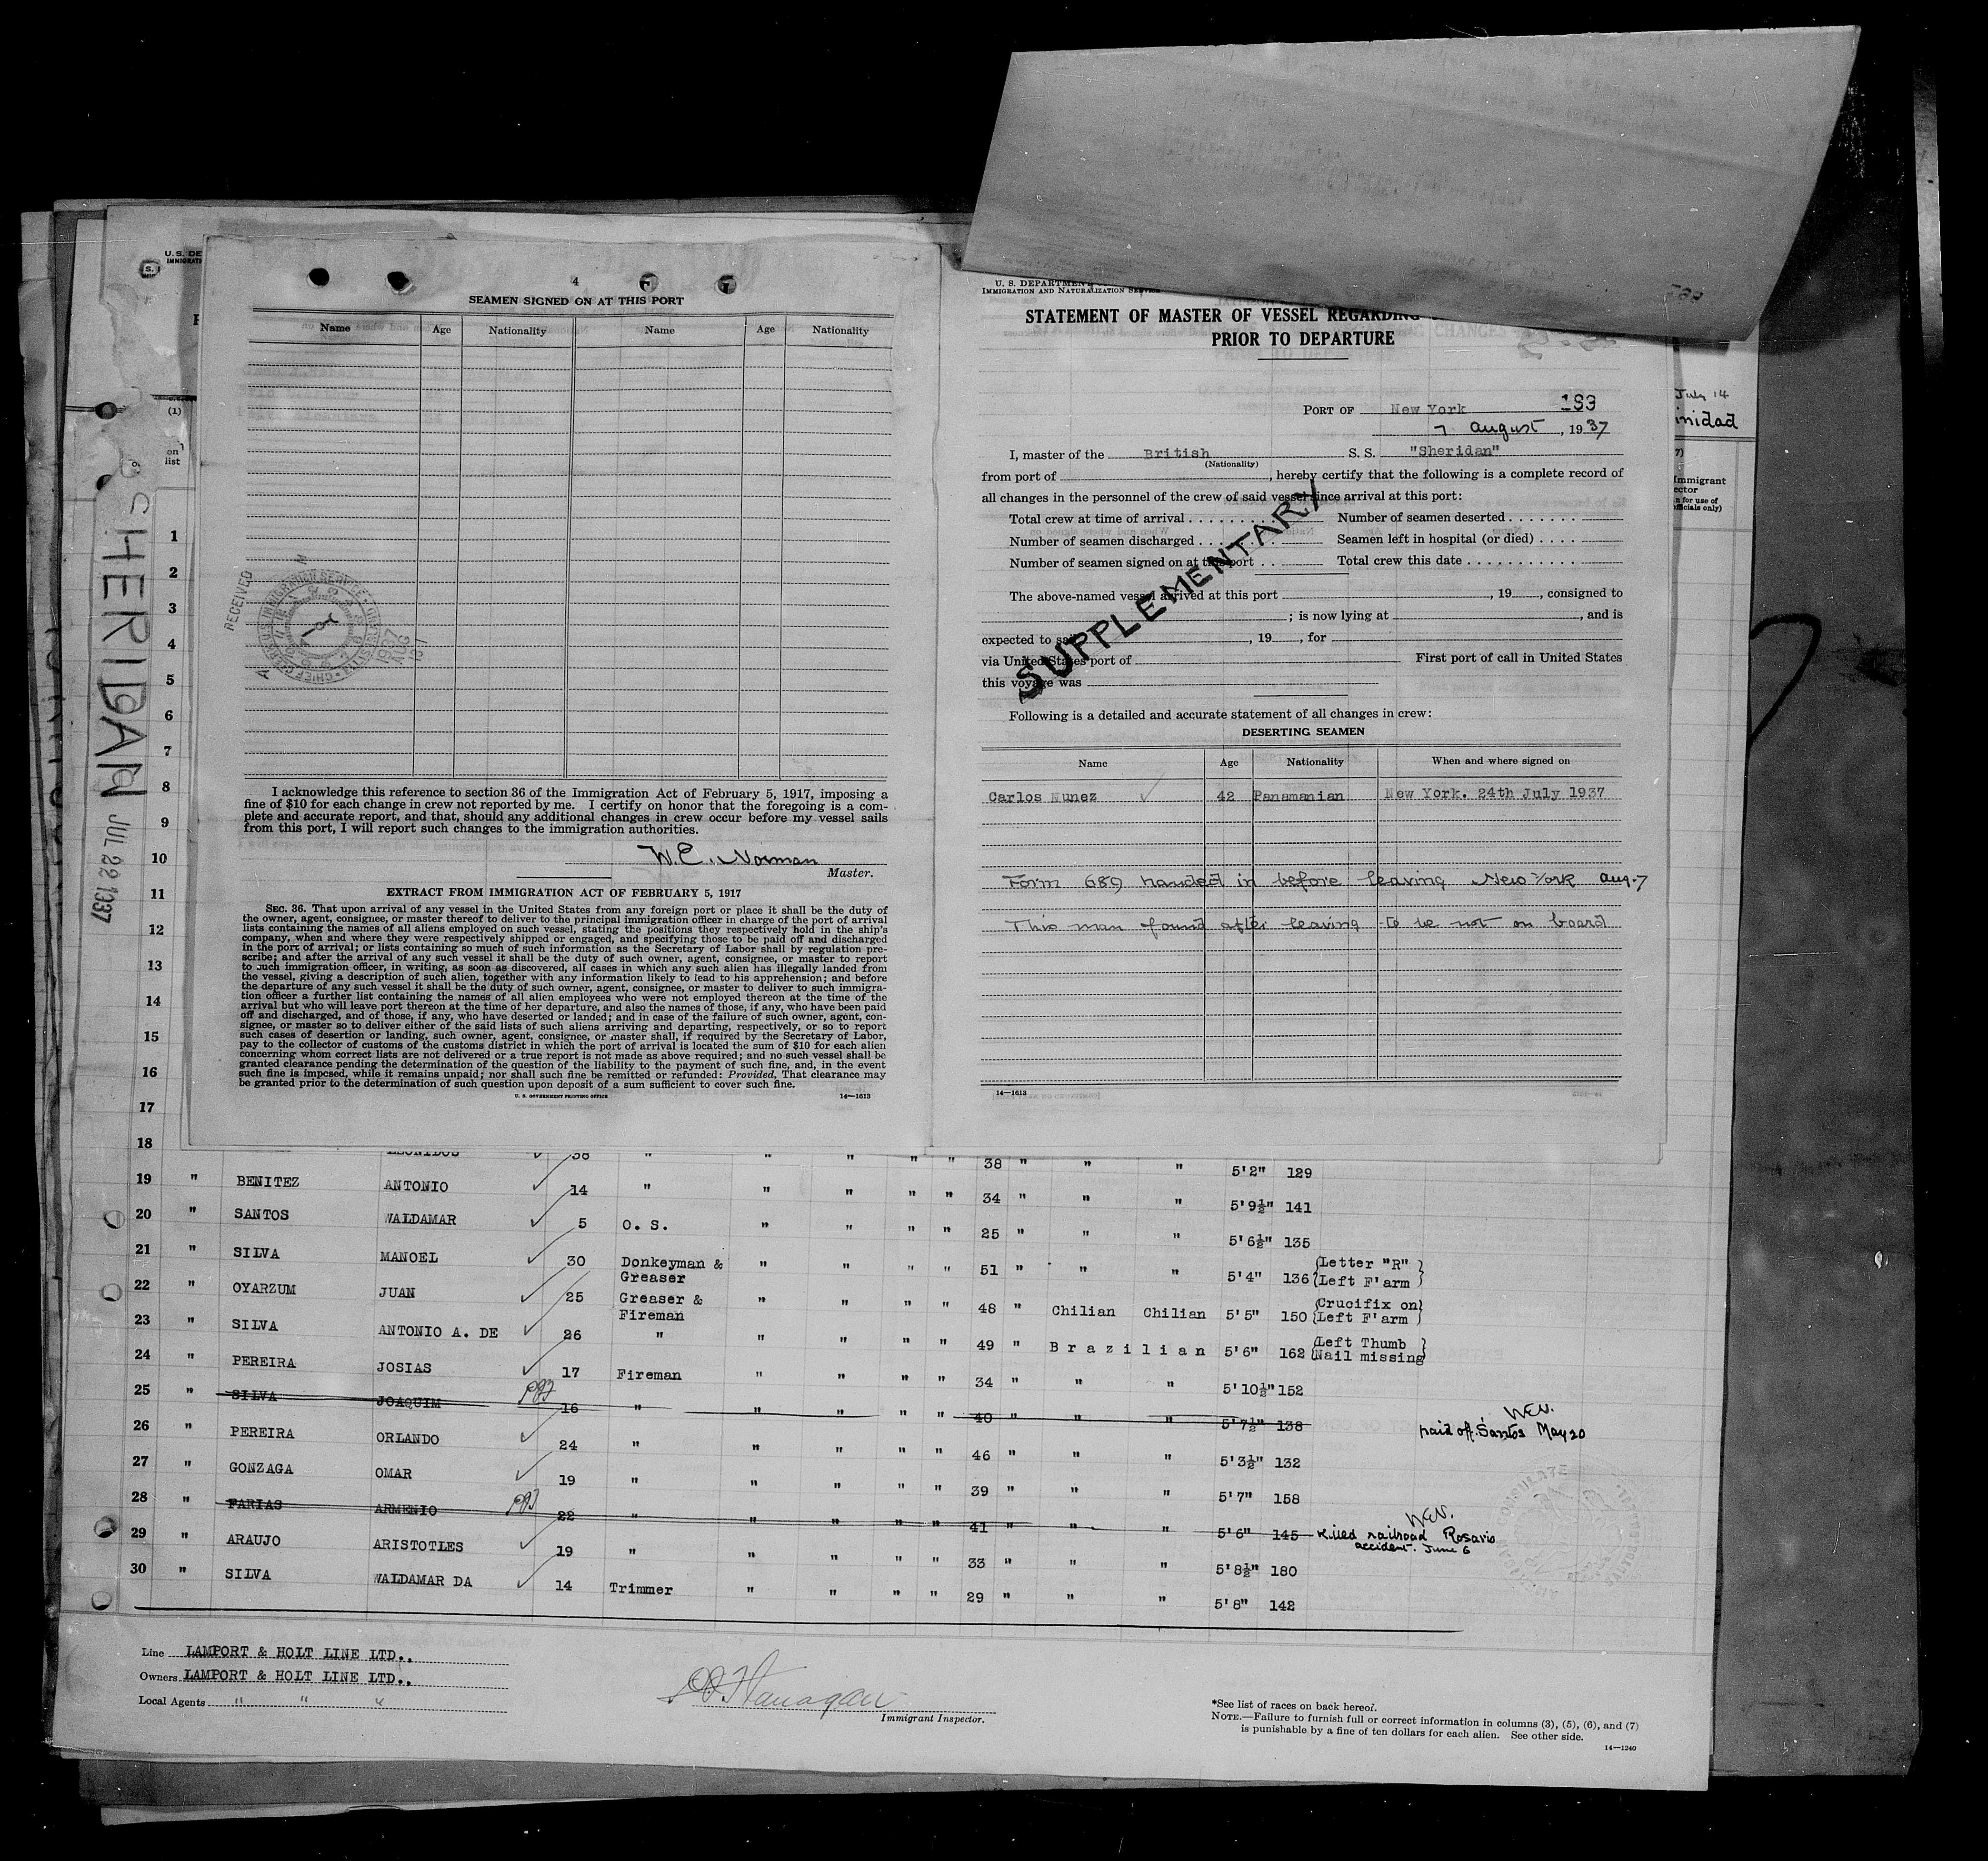 4
SEAMEN SIGNED ON AT THIS PORT
Name Age Nationality Name Age Nationality
RECEIVED
1937
AUG
I acknowledge this reference to section 36 of the Immigration Act of February 5, 1917, imposing a
fine of $10 for each change in crew not reported by me. I certify on honor that the foregoing is a com-
plete and accurate report, and that, should any additional changes in crew occur before my vessel sails
from this port, I will report such changes to the immigration authorities.
W. E. Norman
Master.
EXTRACT FROM IMMIGRATION ACT OF FEBRUARY 5, 1917
SEC. 36. That upon arrival of any vessel in the United States from any foreign port or place it shall be the duty of
the owner, agent, consignee, or master thereof to deliver to the principal immigration officer in charge of the port of arrival
lists containing the names of all aliens employed on such vessel, stating the positions they respectively hold in the ship's
company, when and where they were respectively shipped or engaged, and specifying those to be paid off and discharged
in the port of arrival; or lists containing so much of such information as the Secretary of Labor shall by regulation pre-
scribe; and after the arrival of any such vessel it shall be the duty of such owner, agent, consignee, or master to report
to such immigration officer, in writing, as soon as discovered, all cases in which any such alien has illegally landed from
the vessel, giving a description of such alien, together with any information likely to lead to his apprehension; and before
the departure of any such vessel it shall be the duty of such owner, agent, consignee, or master to deliver to such immigra-
tion officer a further list containing the names of all alien employees who were not employed thereon at the time of the
arrival but who will leave port thereon at the time of her departure, and also the names of those, if any, who have been paid
off and discharged, and of those, if any, who have deserted or landed; and in case of the failure of such owner, agent, con-
signee, or master so to deliver either of the said lists of such aliens arriving and departing, respectively, or so to report
such cases of desertion or landing, such owner, agent, consignee, or master shall, if required by the Secretary of Labor,
pay to the collector of customs of the customs district in which the port of arrival is located the sum of $10 for each alien
concerning whom correct lists are not delivered or a true report is not made as above required; and no such vessel shall be
granted clearance pending the determination of the question of the liability to the payment of such fine, and, in the event
such fine is imposed, while it remains unpaid; nor shall such fine be remitted or refunded: Provided, That clearance may
be granted prior to the determination of such question upon deposit of a sum sufficient to cover such fine.
U. S. GOVERNMENT PRINTING OFFICE 14—1613
U. S. DEPARTMENT
IMMIGRATION AND NATURALIZATION SERVICE
STATEMENT OF MASTER OF VESSEL REGARDING
PRIOR TO DEPARTURE
PORT OF New York 193
7 august, 1937
I, master of the British S. S. "Sheridan"
(Nationality)
from port of , hereby certify that the following is a complete record of
all changes in the personnel of the crew of said vessel since arrival at this port:
Total crew at time of arrival Number of seamen deserted
Number of seamen discharged Seamen left in hospital (or died)
Number of seamen signed on at this port Total crew this date
The above-named vessel arrived at this port , 19 , consigned to
; is now lying at , and is
expected to sail , 19 , for
via United States port of First port of call in United States
this voyage was
SUPPLEMENTARY
Following is a detailed and accurate statement of all changes in crew:
DESERTING SEAMEN
Name Age Nationality When and where signed on
Carlos Nunez 42 Panamanian New York. 24th July 1937
Form 689 handed in before leaving New York Aug. 7
This man found after leaving to be not on board
14—1613
SHERIDAN JUL 22 1937
U. S. DE
IMMIGRATI
(1)
on
list
July 14
inidad
mmigrant
ector
n for use of
officials only)
1
2
3
4
5
6
7
8
9
10
11
12
13
14
15
16
17
18 LEONIDOS 38 " " " " " 38 " " " 5'2" 129
19 " BENITEZ ANTONIO 14 " " " " " 34 " " " 5'9½" 141
20 " SANTOS WALDAMAR 5 O. S. " " " " 25 " " " 5'6½" 135
21 " SILVA MANOEL 30 Donkeyman & Greaser " " " " 51 " " " 5'4" 136 Letter "R" Left F'arm
22 " OYARZUM JUAN 25 Greaser & Fireman " " " " 48 " Chilian Chilian 5'5" 150 Crucifix on Left F'arm
23 " SILVA ANTONIO A. DE 26 " " " " " 49 " Brazilian 5'6" 162 Left Thumb Nail missing
24 " PEREIRA JOSIAS 17 Fireman " " " " 34 " " " 5'10½" 152
25 " SILVA JOAQUIM 16 " " " " " 40 " " " 5'7½" 138 W.E.N. paid off Santos May 20
26 " PEREIRA ORLANDO 24 " " " " " 46 " " " 5'3½" 132
27 " GONZAGA OMAR 19 " " " " " 39 " " " 5'7" 158
28 " FARIAS ARMENIO 22 " " " " " 41 " " " 5'6" 145 W.E.N. Killed railroad Rosario accident. June 6
29 " ARAUJO ARISTOTLES 19 " " " " " 33 " " " 5'8½" 180
30 " SILVA WALDAMAR DA 14 Trimmer " " " " 29 " " " 5'8" 142
Line LAMPORT & HOLT LINE LTD.,
Owners LAMPORT & HOLT LINE LTD.,
Local Agents " " "
Flanagan
Immigrant Inspector.
*See list of races on back hereof.
NOTE.—Failure to furnish full or correct information in columns (3), (5), (6), and (7)
is punishable by a fine of ten dollars for each alien. See other side.
14—1240